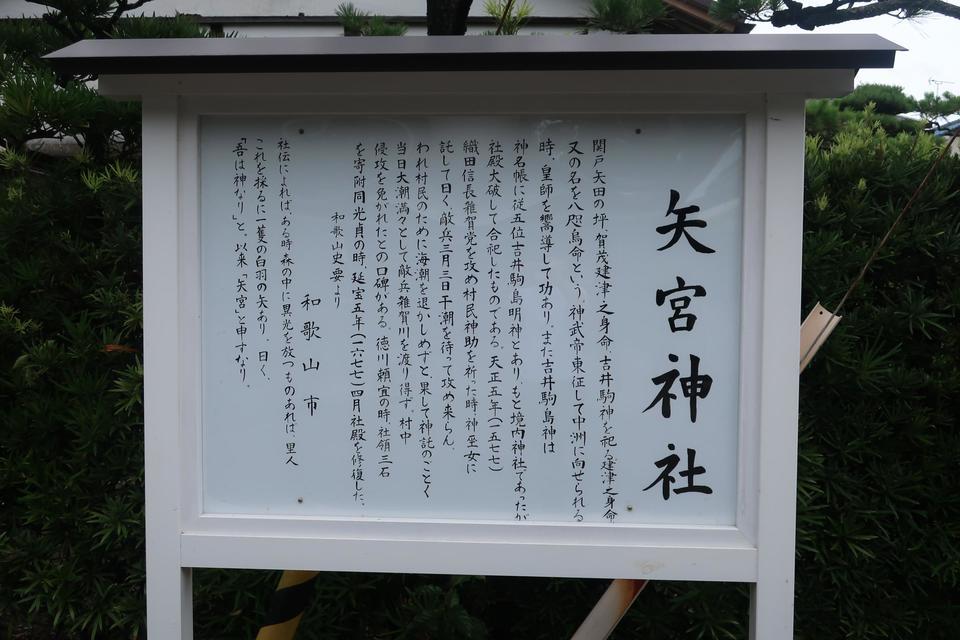 矢宮神社
関戸矢田の坪、賀茂建津之身命、吉井駒神を祀る建津之身命
又の名を八咫烏命という、神武帝東征して中洲に向せられる
時、皇師を嚮導して功あり、また吉井駒島神は
神名帳に従五位吉井駒島明神とあり、もと境内神社であったが
社殿大破して合祀したものである。天正五年(一五七七)
織田信長雑賀党を攻め村民神助を祈った時、神巫女に
託して曰く、敵兵三月三日干潮を待って攻め来らん、
われ村民のために海潮を退かしめずと、果して神託のごとく
当日大潮満々として敵兵雑賀川を渡り得ず、村中
侵攻を免がれたとの口碑がある。徳川頼宣の時、社領三石
を寄附同光貞の時、延宝五年(一六七七)四月社殿を修復した。
和歌山史要より
和歌山市
社伝によれば、ある時森の中に異光を放つものあれば、里人
これを採るに一隻の白羽の矢あり、曰く、
「吾は神なり」と、以来「矢宮」と申すなり。